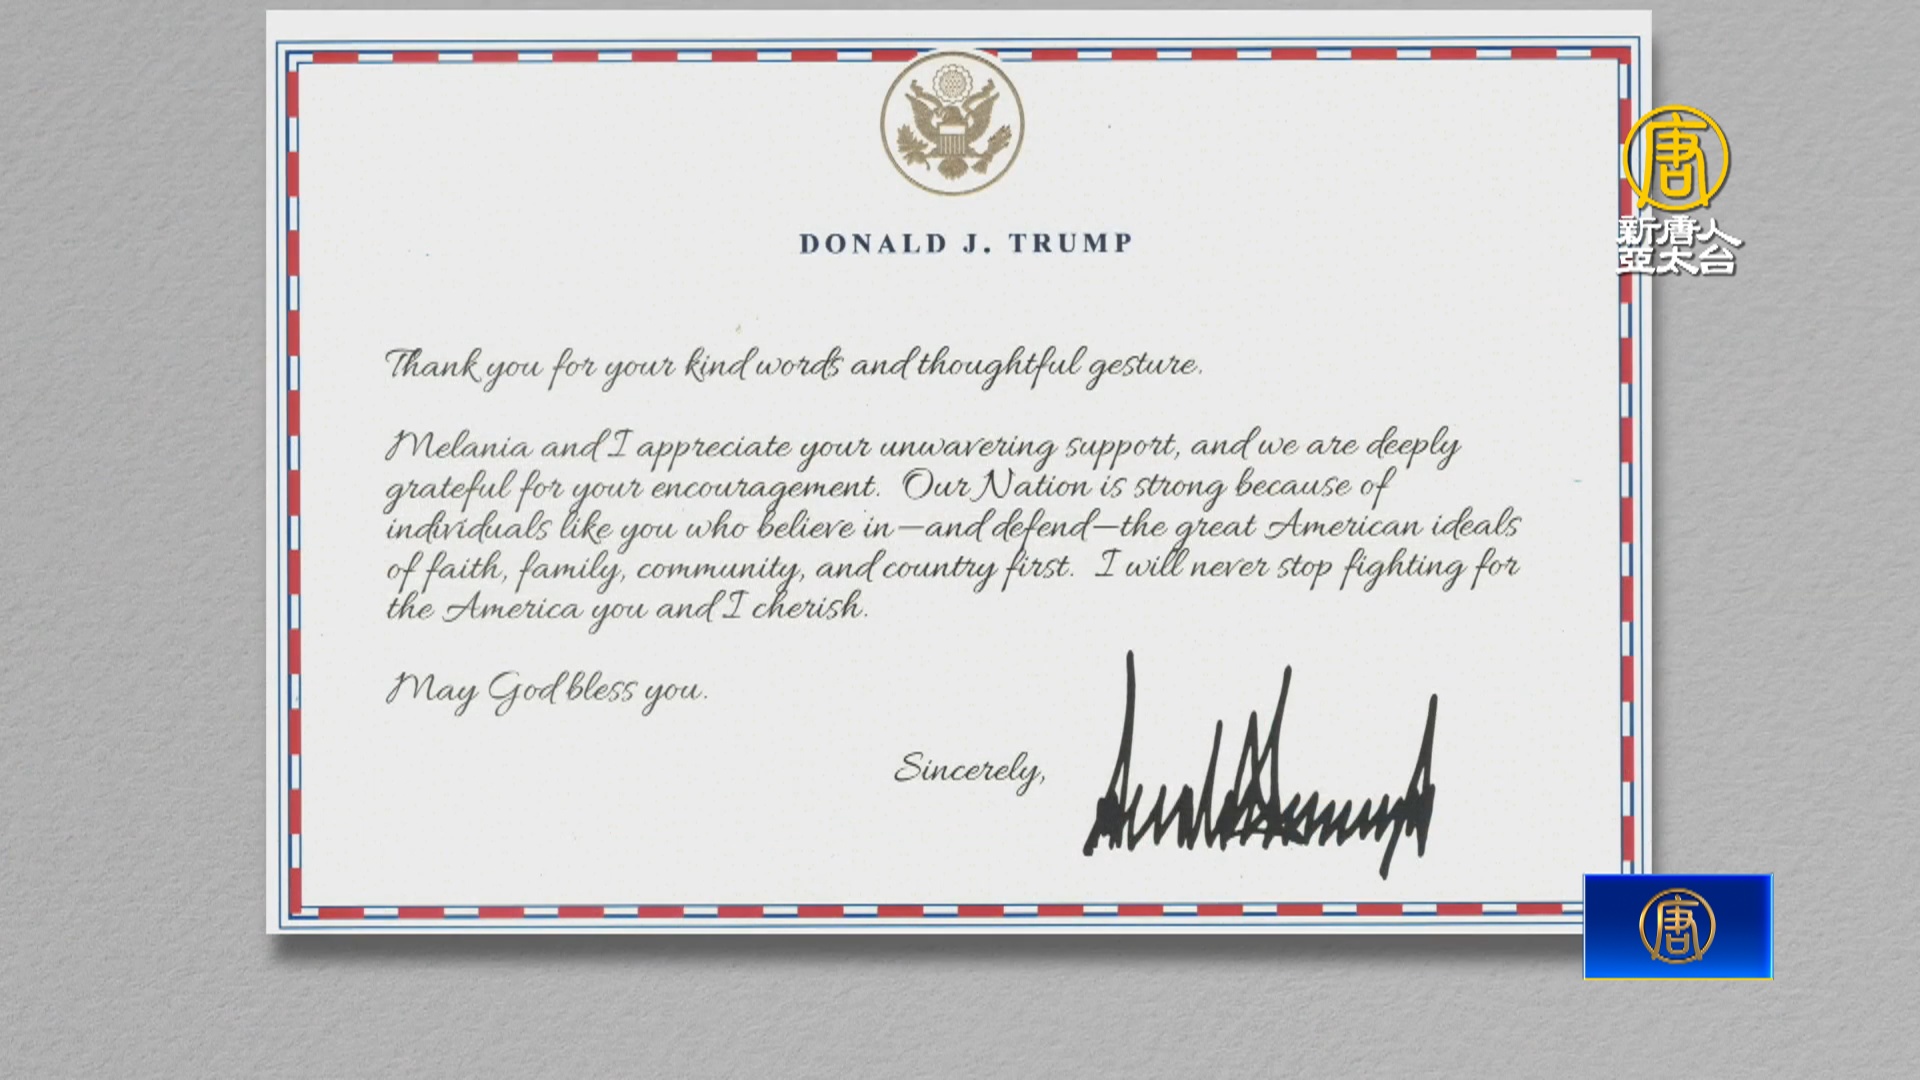 DONALD J. TRUMP
唐
新唐人
亞太台
Thank you for your kind words and thoughtful gesture.
Melania and I appreciate your unwavering support, and we are deeply
grateful for your encouragement. Our Nation is strong because of
individuals like you who believe in—and defend—the great American ideals
of faith, family, community, and country first. I will never stop fighting for
the America you and I cherish.
May God bless you.
Sincerely,
唐